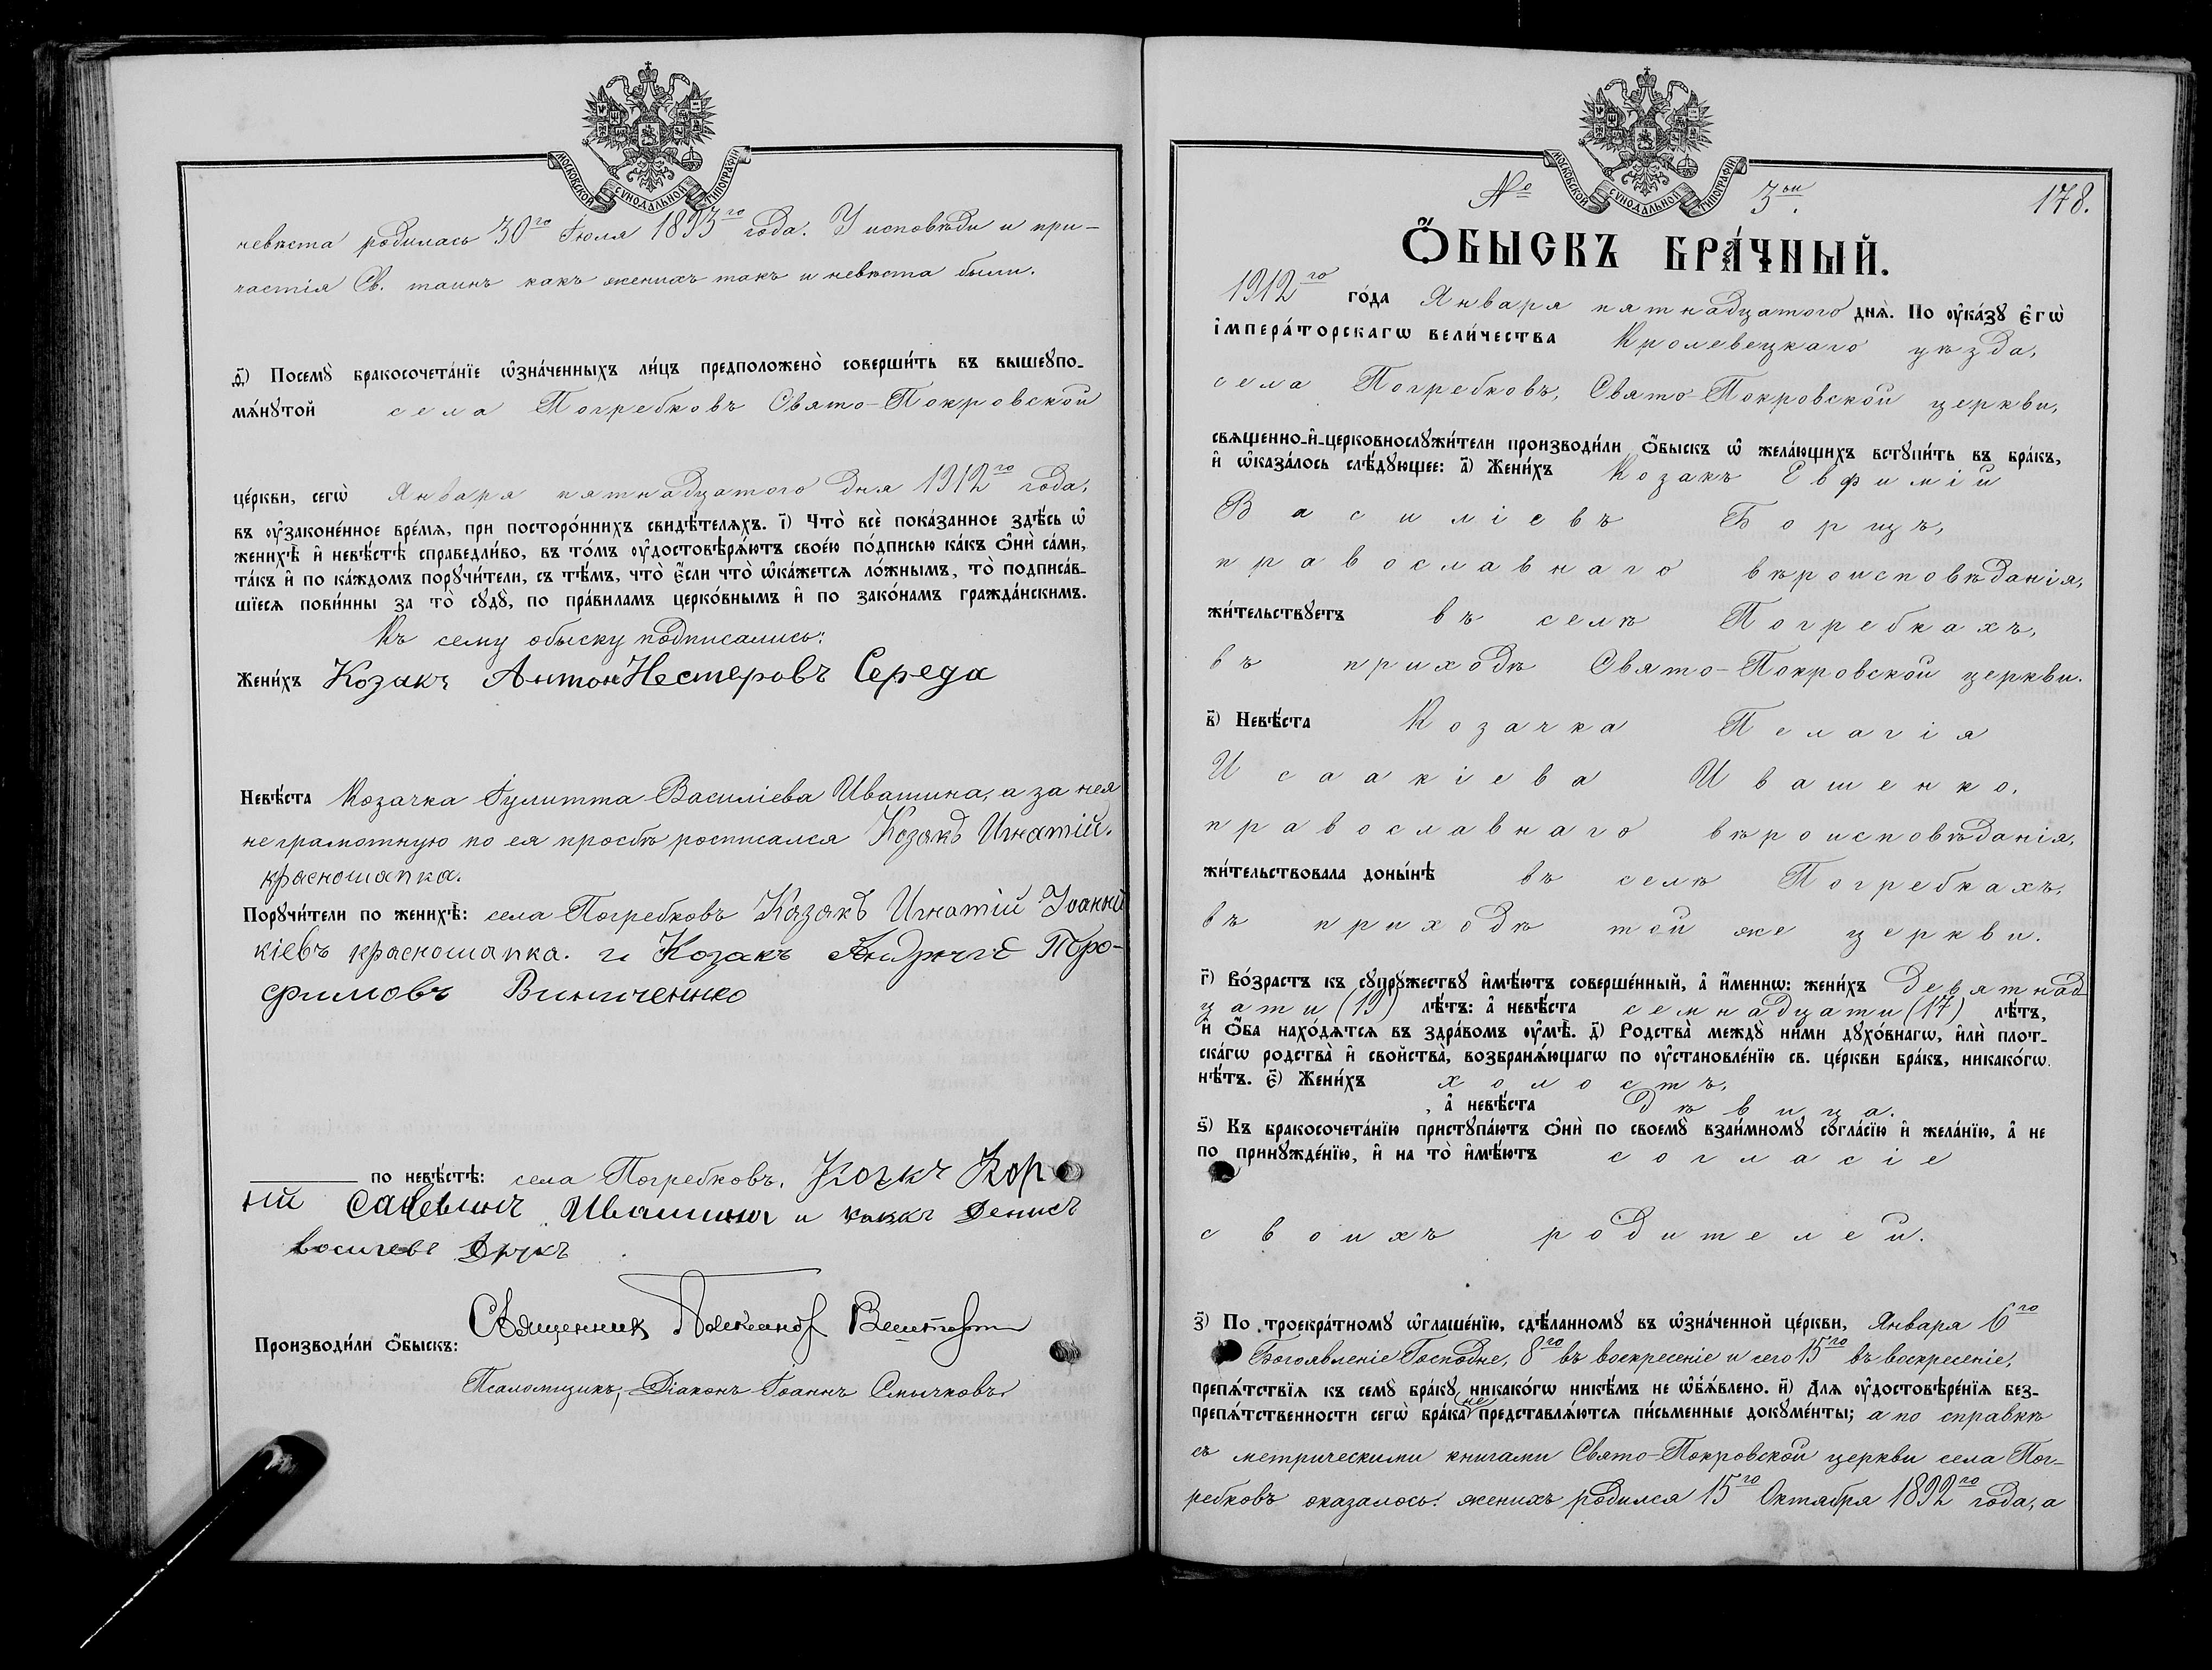 МОСКОВСКОЙ СУНОДАЛЬНОЙ ТИПОГРАФІИ
невѣста родилась 30го Іюля 1893го года. У исповѣди и при-
частія Св. таинъ какъ женихъ такъ и невѣста были.
д҃і) Посемꙋ̀ бракосочета́нїе ѡ҆зна́ченныхъ ли́цъ предположено̀ соверши́ть въ вышеꙋпо-
мѧ́нꙋтой села Погребковъ Свято-Покровской
це́ркви, сегѡ̀ Января пятнадцатого дня 1912го года,
въ ᲂу҆законе́нное вре́мѧ, при посторо́ннихъ свидѣ́телѧхъ. і҃) Что̀ всѐ пока́занное здѣ́сь ѡ҆
женихѣ̀ и҆ невѣ́стѣ справедли́во, въ то́мъ ᲂу҆достовѣрѧ́ютъ свое́ю по́дписью ка́къ ѻ҆нѝ са́ми,
та́къ и҆ по ка́ждомъ порꙋчи́тели, съ тѣ́мъ, что̀ є҆́сли что̀ ѡ҆ка́жетсѧ ло́жнымъ, то̀ подписа́в-
шїесѧ пови́нны за то̀ сꙋдꙋ̀, по пра́виламъ церко́внымъ и҆ по зако́намъ гражда́нскимъ.
Къ сему обыску подписались:
Жени́хъ Козакъ Антон Нестеровъ Середа
Невѣ́ста Козачка Іулитта Василіева Ивашина, а за нея
неграмотную по ея просьбѣ росписался Козакъ Игнатій
красношапка.
Порꙋчи́тели по женихѣ̀: села Погребковъ Казакъ Игнатій Іоанни
кіевъ красношапка. и Козакъ Андрѣй Тро-
фимовъ Винниченко
по невѣ́стѣ: села Погребковъ, Кор
ній Ивашина и Денисъ
Производи́ли ѻ҆́быскъ: Священник
Псаломщикъ, Діаконъ Іоаннъ Смычковъ
МОСКОВСКОЙ СУНОДАЛЬНОЙ ТИПОГРАФІИ
№ 3ій. 178.
Ѻ҆́БЫСКЪ БРА́ЧНЫЙ.
1912го го́да Января пятнадцатого днѧ̀. По ᲂу҆ка́зꙋ є҆гѡ̀
і҆мпера́торскагѡ вели́чества Кролевецкаго уѣзда,
села Погребковъ, Свято-Покровской церкви,
свѧщенно-и҆-церковнослꙋжи́тели производи́ли ѻ҆́быскъ ѡ҆ жела́ющихъ встꙋпи́ть въ бра́къ,
и҆ ѡ҆каза́лось слѣ́дꙋющее: а҃) Жени́хъ Козакъ Евфимій
Василіевъ Борицъ,
православнаго вѣроисповѣданія,
жи́тельствꙋетъ въ селѣ Погребкахъ,
въ приходѣ Свято-Покровской церкви.
в҃) Невѣ́ста Козачка Пелагія
Исаакіева Иващенко,
православнаго вѣроисповѣданія,
жи́тельствовала доны́нѣ въ селѣ Погребкахъ,
въ приходѣ той же церкви.
г҃) Во́зрастъ къ сꙋпрꙋ́жествꙋ и҆мѣ́ютъ соверше́нный, а҆ и҆́менно: жени́хъ девятнад
цати (19) лѣ́тъ: а҆ невѣ́ста семнадцати (17) лѣ́тъ,
и҆ ѻ҆́ба нахо́дѧтсѧ въ здра́вомъ ᲂу҆мѣ̀. д҃) Родства̀ междꙋ̀ ни́ми дꙋхо́внагѡ, и҆лѝ плот-
ска́гѡ родства̀ и҆ свойства̀, возбранѧ́ющагѡ по ᲂу҆становле́нїю св. це́ркви бра́къ, никако́гѡ
нѣ́тъ. є҃) Жени́хъ холостъ,
, а҆ невѣ́ста дѣвица.
ѕ҃) Къ бракосочета́нїю пристꙋпа́ютъ ѻ҆нѝ по своемꙋ̀ взаи́мномꙋ согла́сїю и҆ жела́нїю, а҆ не
по принꙋжде́нїю, и҆ на то̀ и҆мѣ́ютъ согласіе
своихъ родителей.
з҃) По троекра́тномꙋ ѡ҆глаше́нїю, сдѣ́ланномꙋ въ ѡ҆зна́ченной це́ркви, Января 6го
Богоявленіе Господне, 8го въ воскресеніе и сего 15го въ воскресеніе,
препѧ́тствїѧ къ семꙋ̀ бра́кꙋ никако́гѡ никѣ́мъ не ѡ҆б̾ѧ́влено. и҃) Длѧ ᲂу҆достовѣре́нїѧ без-
препѧ́тственности сегѡ̀ бра́ка не представлѧ́ютсѧ пи́сьменные докꙋме́нты; а по справкѣ
съ метрическими книгами Свято-Покровской церкви села Пог-
ребковъ оказалось: женихъ родился 15го Октября 1892го года, а